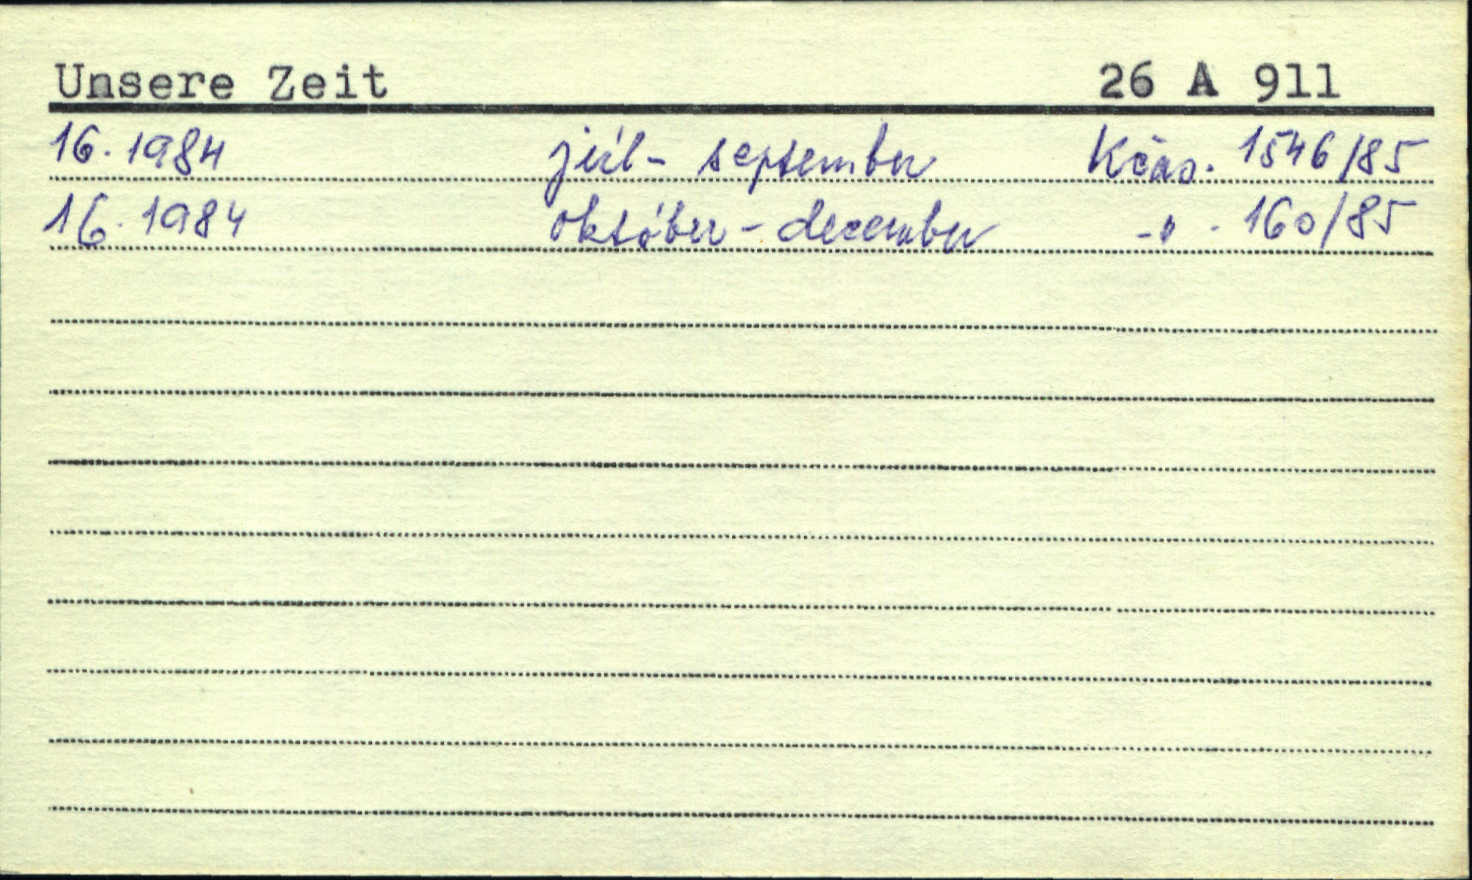 Unsere Zeit 26 A 911
16. 1984 júl - september Kčas. 1546/85
16. 1984 október - december -"- 160/85